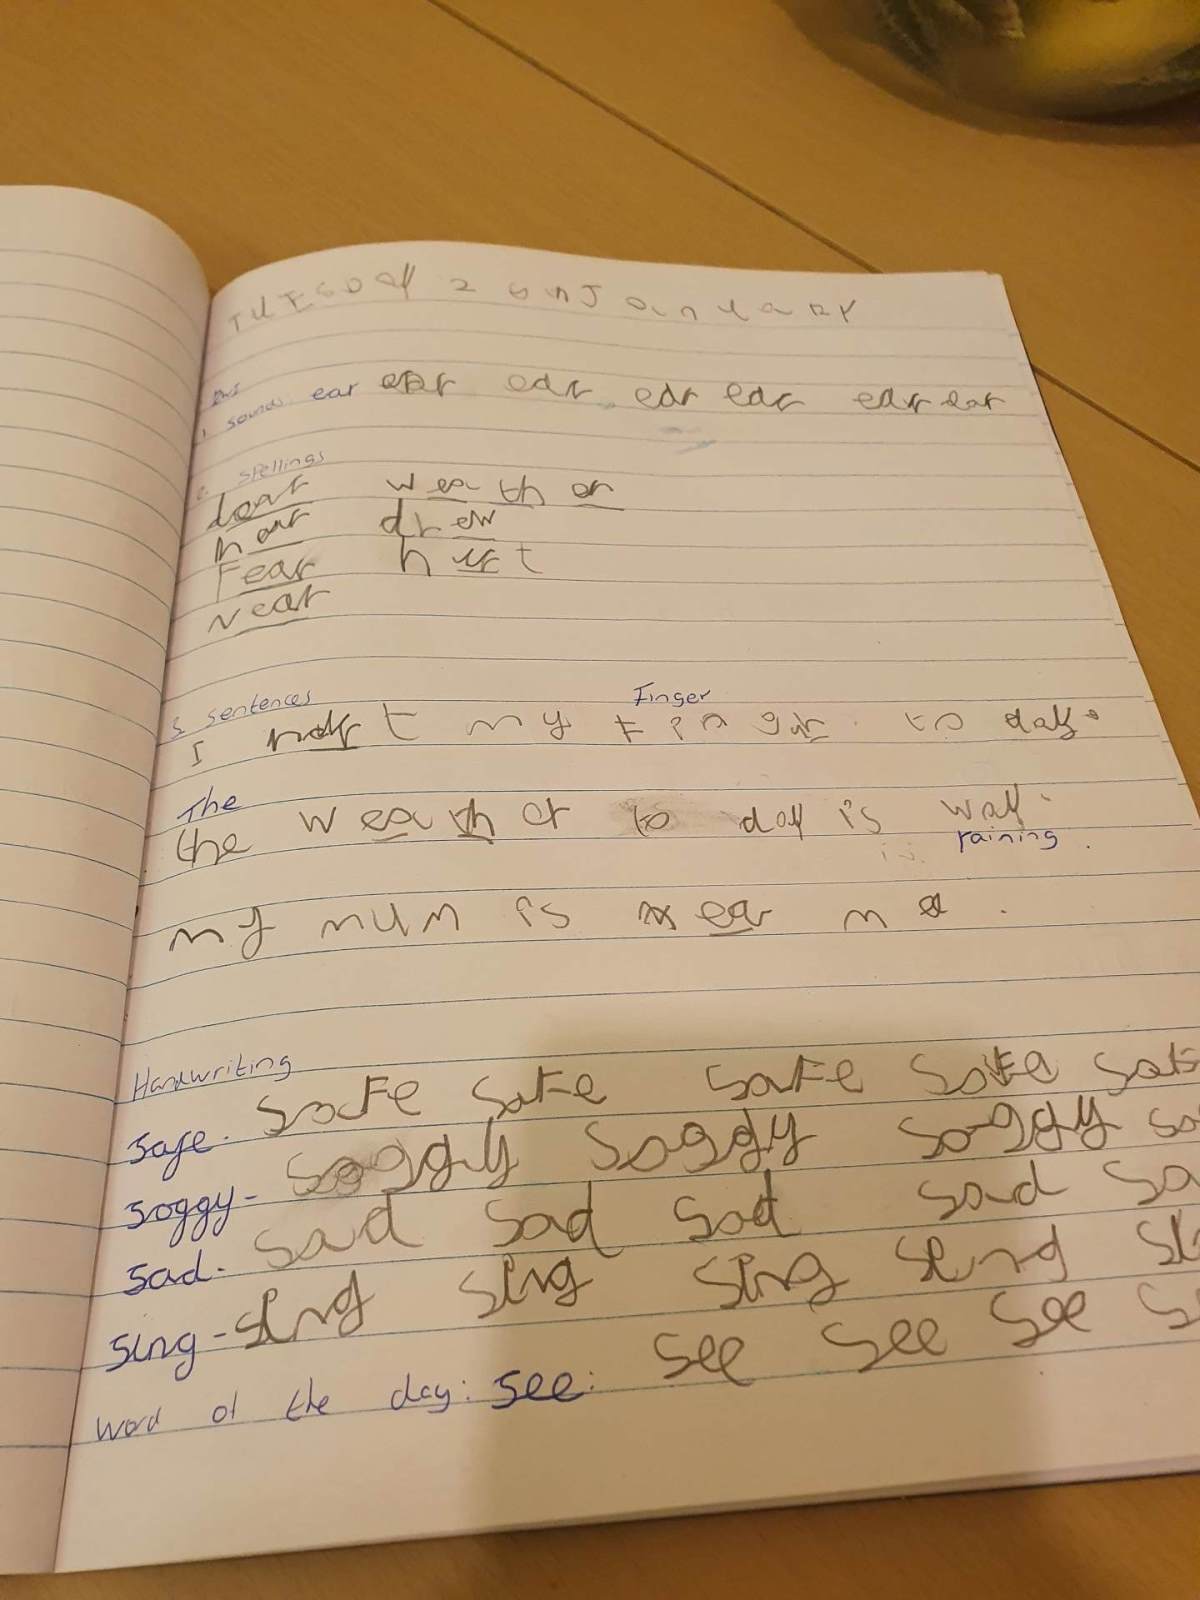 TUESDAY
RWI
1. sounds ear ear ear ear ear ear ear
2. spellings
weather
hear drew
Fear hurt
near
3 sentences Finger
I hurt my today.
The
the weather to day is
raining.
my mum is near me.
Handwriting
Safe. safe safe safe safe safe
Soggy - soggy soggy soggy so
Sad. sad sad sad sad sa
Sing - sing sing sing sing si
word of the day: see: see see see s